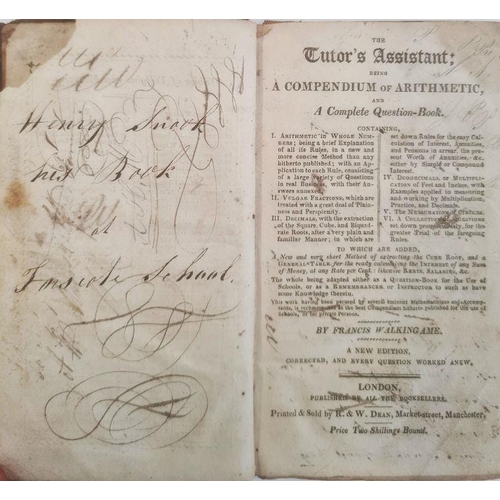 Henry Snook
his Book
at
School
THE
Tutor's Assistant;
BEING
A COMPENDIUM OF ARITHMETIC,
AND
A Complete Question-Book.
CONTAINING,
I. ARITHMETIC IN WHOLE NUM-
BERS; being a brief Explanation
of all its Rules, in a new and
more concise Method than any
hitherto published; with an Ap-
plication to each Rule, consisting
of a large Variety of Questions
in real Business, with their An-
swers annexed.
II. VULGAR FRACTIONS, which are
treated with a great deal of Plain-
ness and Perspicuity.
III. DECIMALS, with the extraction
of the Square, Cube, and Biquad-
rate Roots, after a very plain and
familiar Manner; to which are
set down Rules for the easy Cal-
culation of Interest, Annuities,
and Pensions in arrear, the pre-
sent Worth of Annuities, &c.
either by Simple or Compound
Interest.
IV. DUODECIMALS, or MULTIPLICA-
TION of Feet and Inches, with
Examples applied to measuring
and working by Multiplication,
Practice, and Decimals.
V. The MENSURATION of CIRCLES.
VI. A COLLECTION of QUESTIONS
set down promiscuously, for the
greater Trial of the foregoing
Rules.
TO WHICH ARE ADDED,
A New and very short Method of extracting the CUBE ROOT, and a
GENERAL TABLE for the ready calculating the INTEREST of any Sum
of Money, at any Rate per Cent.; likewise RENTS, SALARIES, &c.
The whole being adapted either as a QUESTION-BOOK for the Use of
Schools, or as a REMEMBRANCER or INSTRUCTOR to such as have
some Knowledge therein.
This work having been perused by several eminent Mathematicians and Accompt-
ants, is recommended as the best Compendium hitherto published for the use of
Schools, or for private Persons.
BY FRANCIS WALKINGAME.
A NEW EDITION,
CORRECTED, AND EVERY QUESTION WORKED ANEW.
LONDON,
PUBLISHED BY ALL THE BOOKSELLERS.
Printed & Sold by R. & W. DEAN, Market-street, Manchester,
Price Two Shillings Bound.